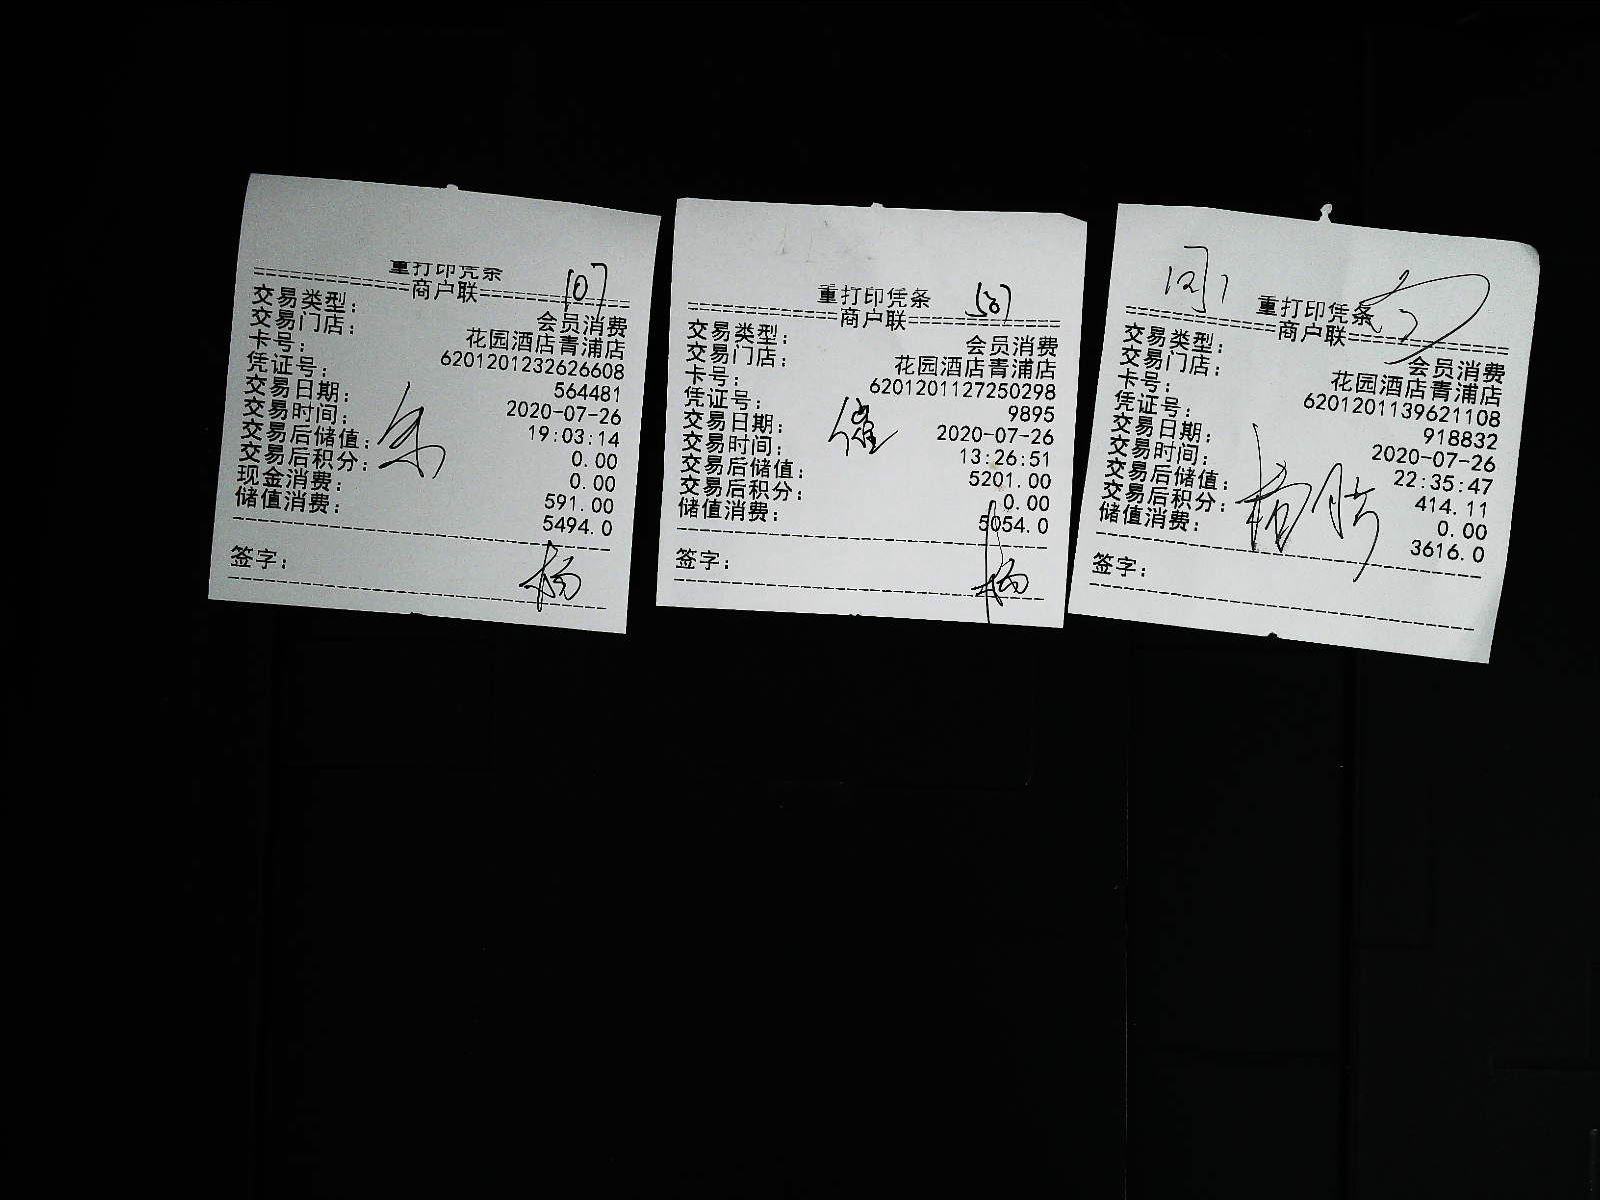 重打印凭条
商户联
交易类型： 会员消费
交易门店： 花园酒店青浦店
卡号： 6201201232626608
凭证号： 564481
交易日期： 2020-07-26
交易时间： 19:03:14
交易后储值： 0.00
交易后积分： 0.00
现金消费： 591.00
储值消费： 5494.0
签字： 杨
重打印凭条
商户联
交易类型： 会员消费
交易门店： 花园酒店青浦店
卡号： 6201201127250298
凭证号： 9895
交易日期： 2020-07-26
交易时间： 13:26:51
交易后储值： 5201.00
交易后积分： 0.00
储值消费： 5054.0
签字： 杨
重打印凭条
商户联
交易类型： 会员消费
交易门店： 花园酒店青浦店
卡号： 6201201139621108
凭证号： 918832
交易日期： 2020-07-26
交易时间： 22:35:47
交易后储值： 414.11
交易后积分： 0.00
储值消费： 3616.0
签字：